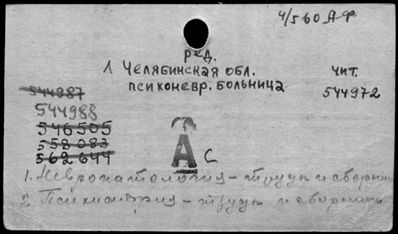 4/560 А-Ф
ред.
1 Челябинская обл. чит.
психоневр. больница 544972
544987
544988
546505
558083
562644
А С
1. Невропатология - труды и сборники
2. Психиатрия - труды и сборники